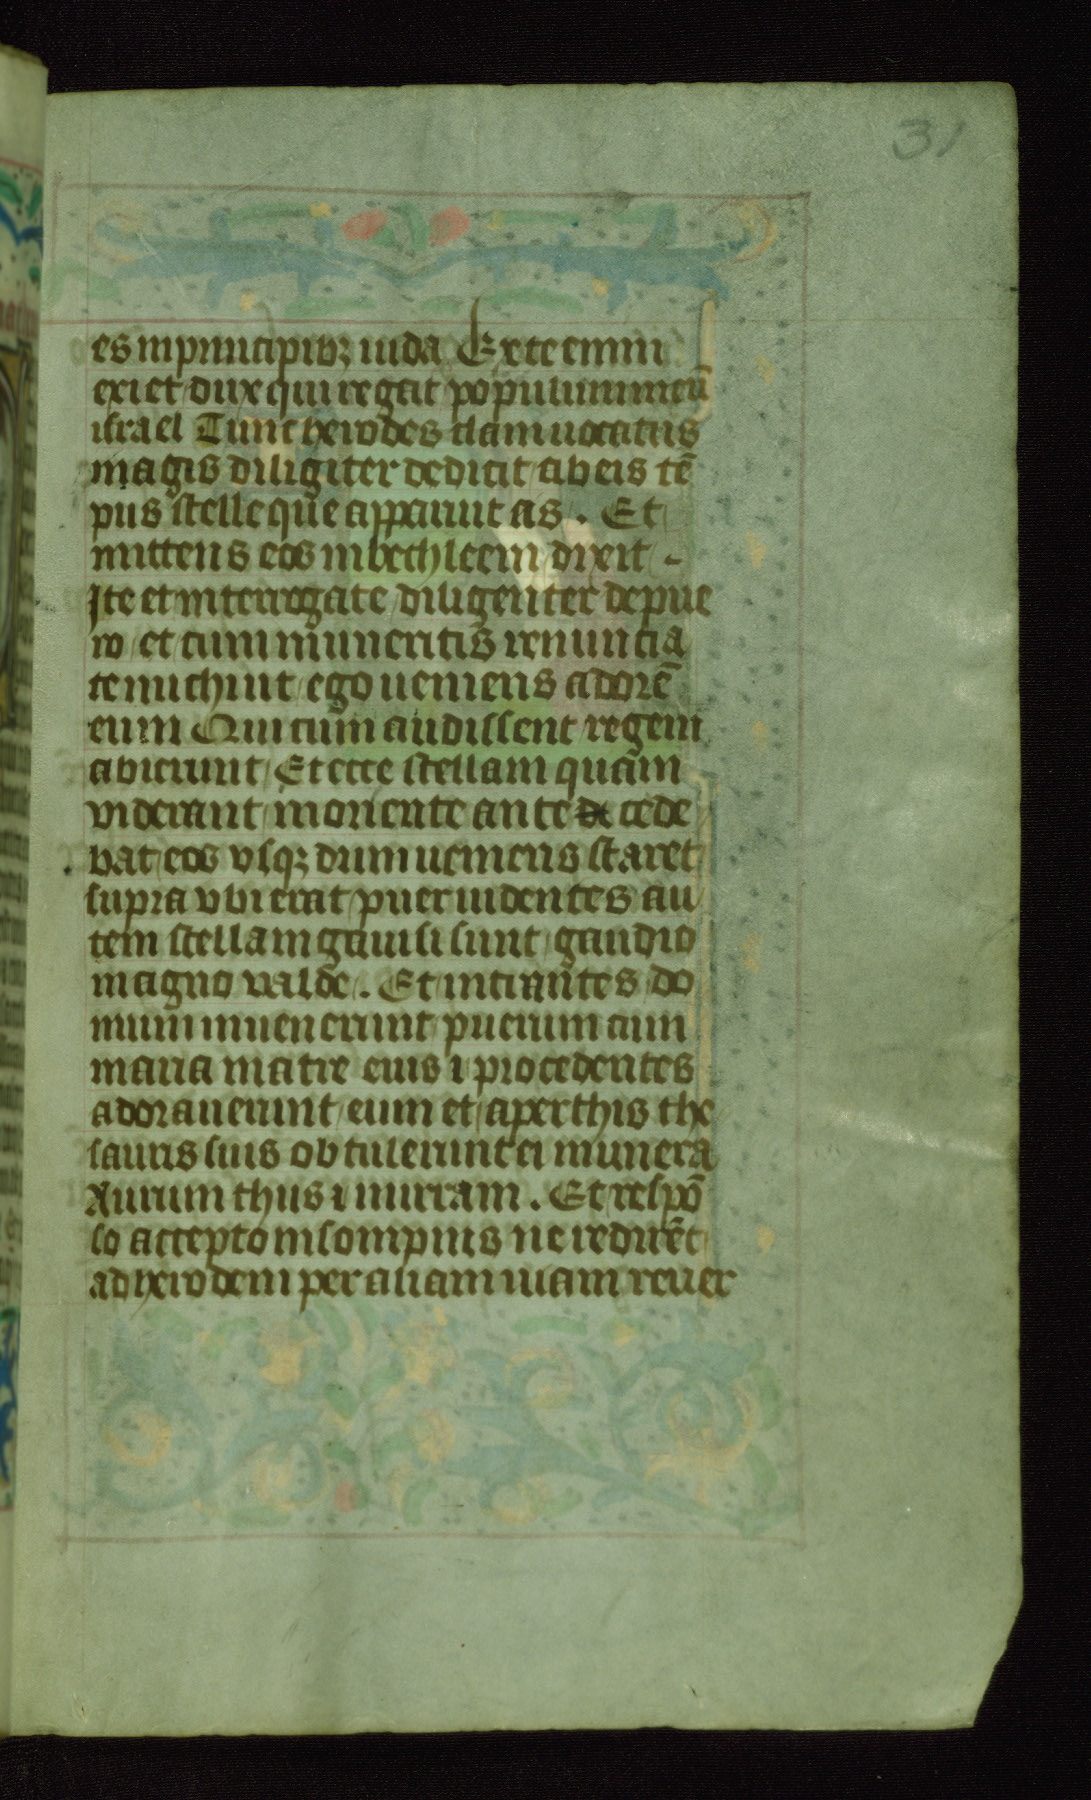 31
es in principibꝫ iuda Ex te enim
exiet dux qui regat populum meū
israel Tunc herodes clam uocatis
magis diligiter dedicit ab eis tē
pus stelle que apparuit as . Et
mittens eos in bethleem dixit -
Ite et interrogate diligenter de pue
ro et cum inuneritis renuncia
te michi ut ego ueniens adorē
eum Qui cum audissent regem
abierunt Et ecce stellam quam
viderant in oriente ante cede
bat eos vsqꝫ dum ueniens staret
supra vbi erat puer uidentes au
tem stellam gauisi sunt gaudio
magno valde . Et intrantes do
mum inuenerunt puerum cum
maria matre eius i procedentes
adorauerunt eum et aperthis the
sauris suis obtulerunt ei munera
Aurum thus i mirram . Et respō
so accepto in sompnis ne redirēt
ad herodem per aliam uiam reuer